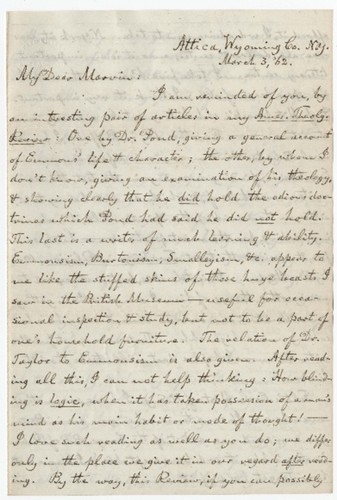 Attica, Wyoming Co. N.Y.
March 3, '62.
My Dear Marvin:
I am reminded of you, by
an interesting pair of articles in my Amer. Theolg.
Review: One by Dr. Pond, giving a general account
of Emmons' life & character; the other, by whom I
don't know, giving an examination of his theology,
& showing clearly that he did hold the odious doc-
trines which Pond had said he did not hold.
This last is a writer of much learning & ability.
Emmonsism, Burtonism, Smalleyism, &c. appear to
me like the stuffed skins of those huge beasts I
saw in the British Museum — useful for occa-
sional inspection & study, but not to be a part of
one's household furniture. The relation of Dr.
Taylor to Emmonsism is also given. After read-
ing all this, I can not help thinking: How blind-
ing is logic, when it has taken possession of a man's
mind as his main habit or mode of thought! —
I love such reading as well as you do; we differ
only in the place we give it in our regard after read-
ing. By the way, this Review, if you can possibly